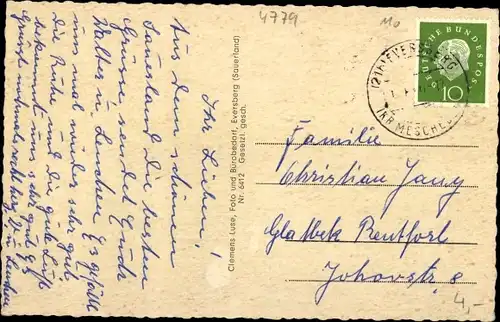 4779
Mo
Ihr Lieben!
Aus dem schönen
Sauerland die besten
Grüsse sendet Euch
Walter u. Lenchen. Es gefällt
uns mal wieder sehr gut.
Die Ruhe und die gute Luft
bekommt uns sehr gut. Es
grüsst nochmals recht herz. Eure Lenchen
Clemens Luse, Foto und Bürobedarf, Eversberg (Sauerland)
Nr. 6412 Gesetzl. gesch.
(21b) EVERSBERG
(KR MESCHEDE)
DEUTSCHE BUNDESPOST
10
Familie
Christian Jany
Gladbeck Rentfort
Johowstr. 8
4,-